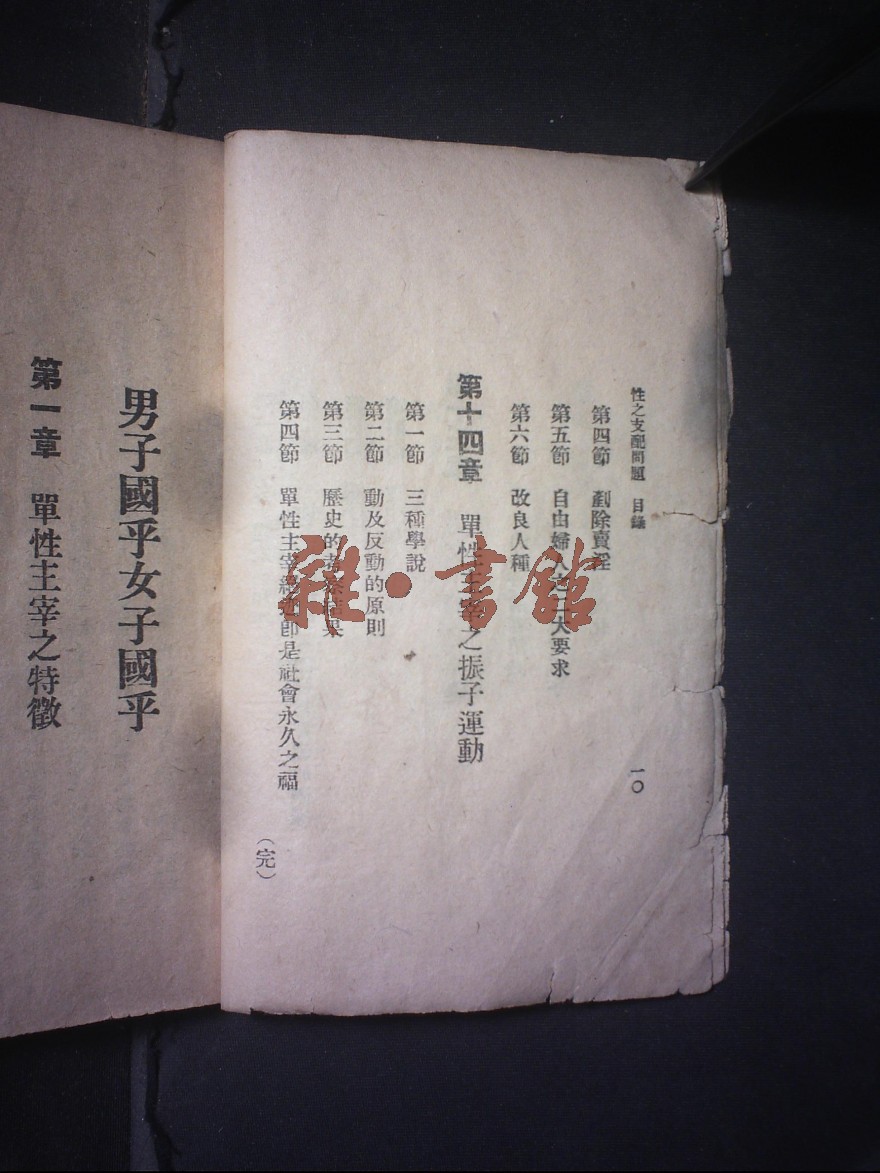 性之支配問題 目錄 一〇
第四節 剷除賣淫
第五節 自由婦人之大要求
第六節 改良人種
第十四章 單性主宰之振子運動
第一節 三種學說
第二節 動及反動的原則
第三節 歷史的結果
第四節 單性主宰卽是社會永久之福
（完）
男子國乎女子國乎
第一章 單性主宰之特徵
雜·書館